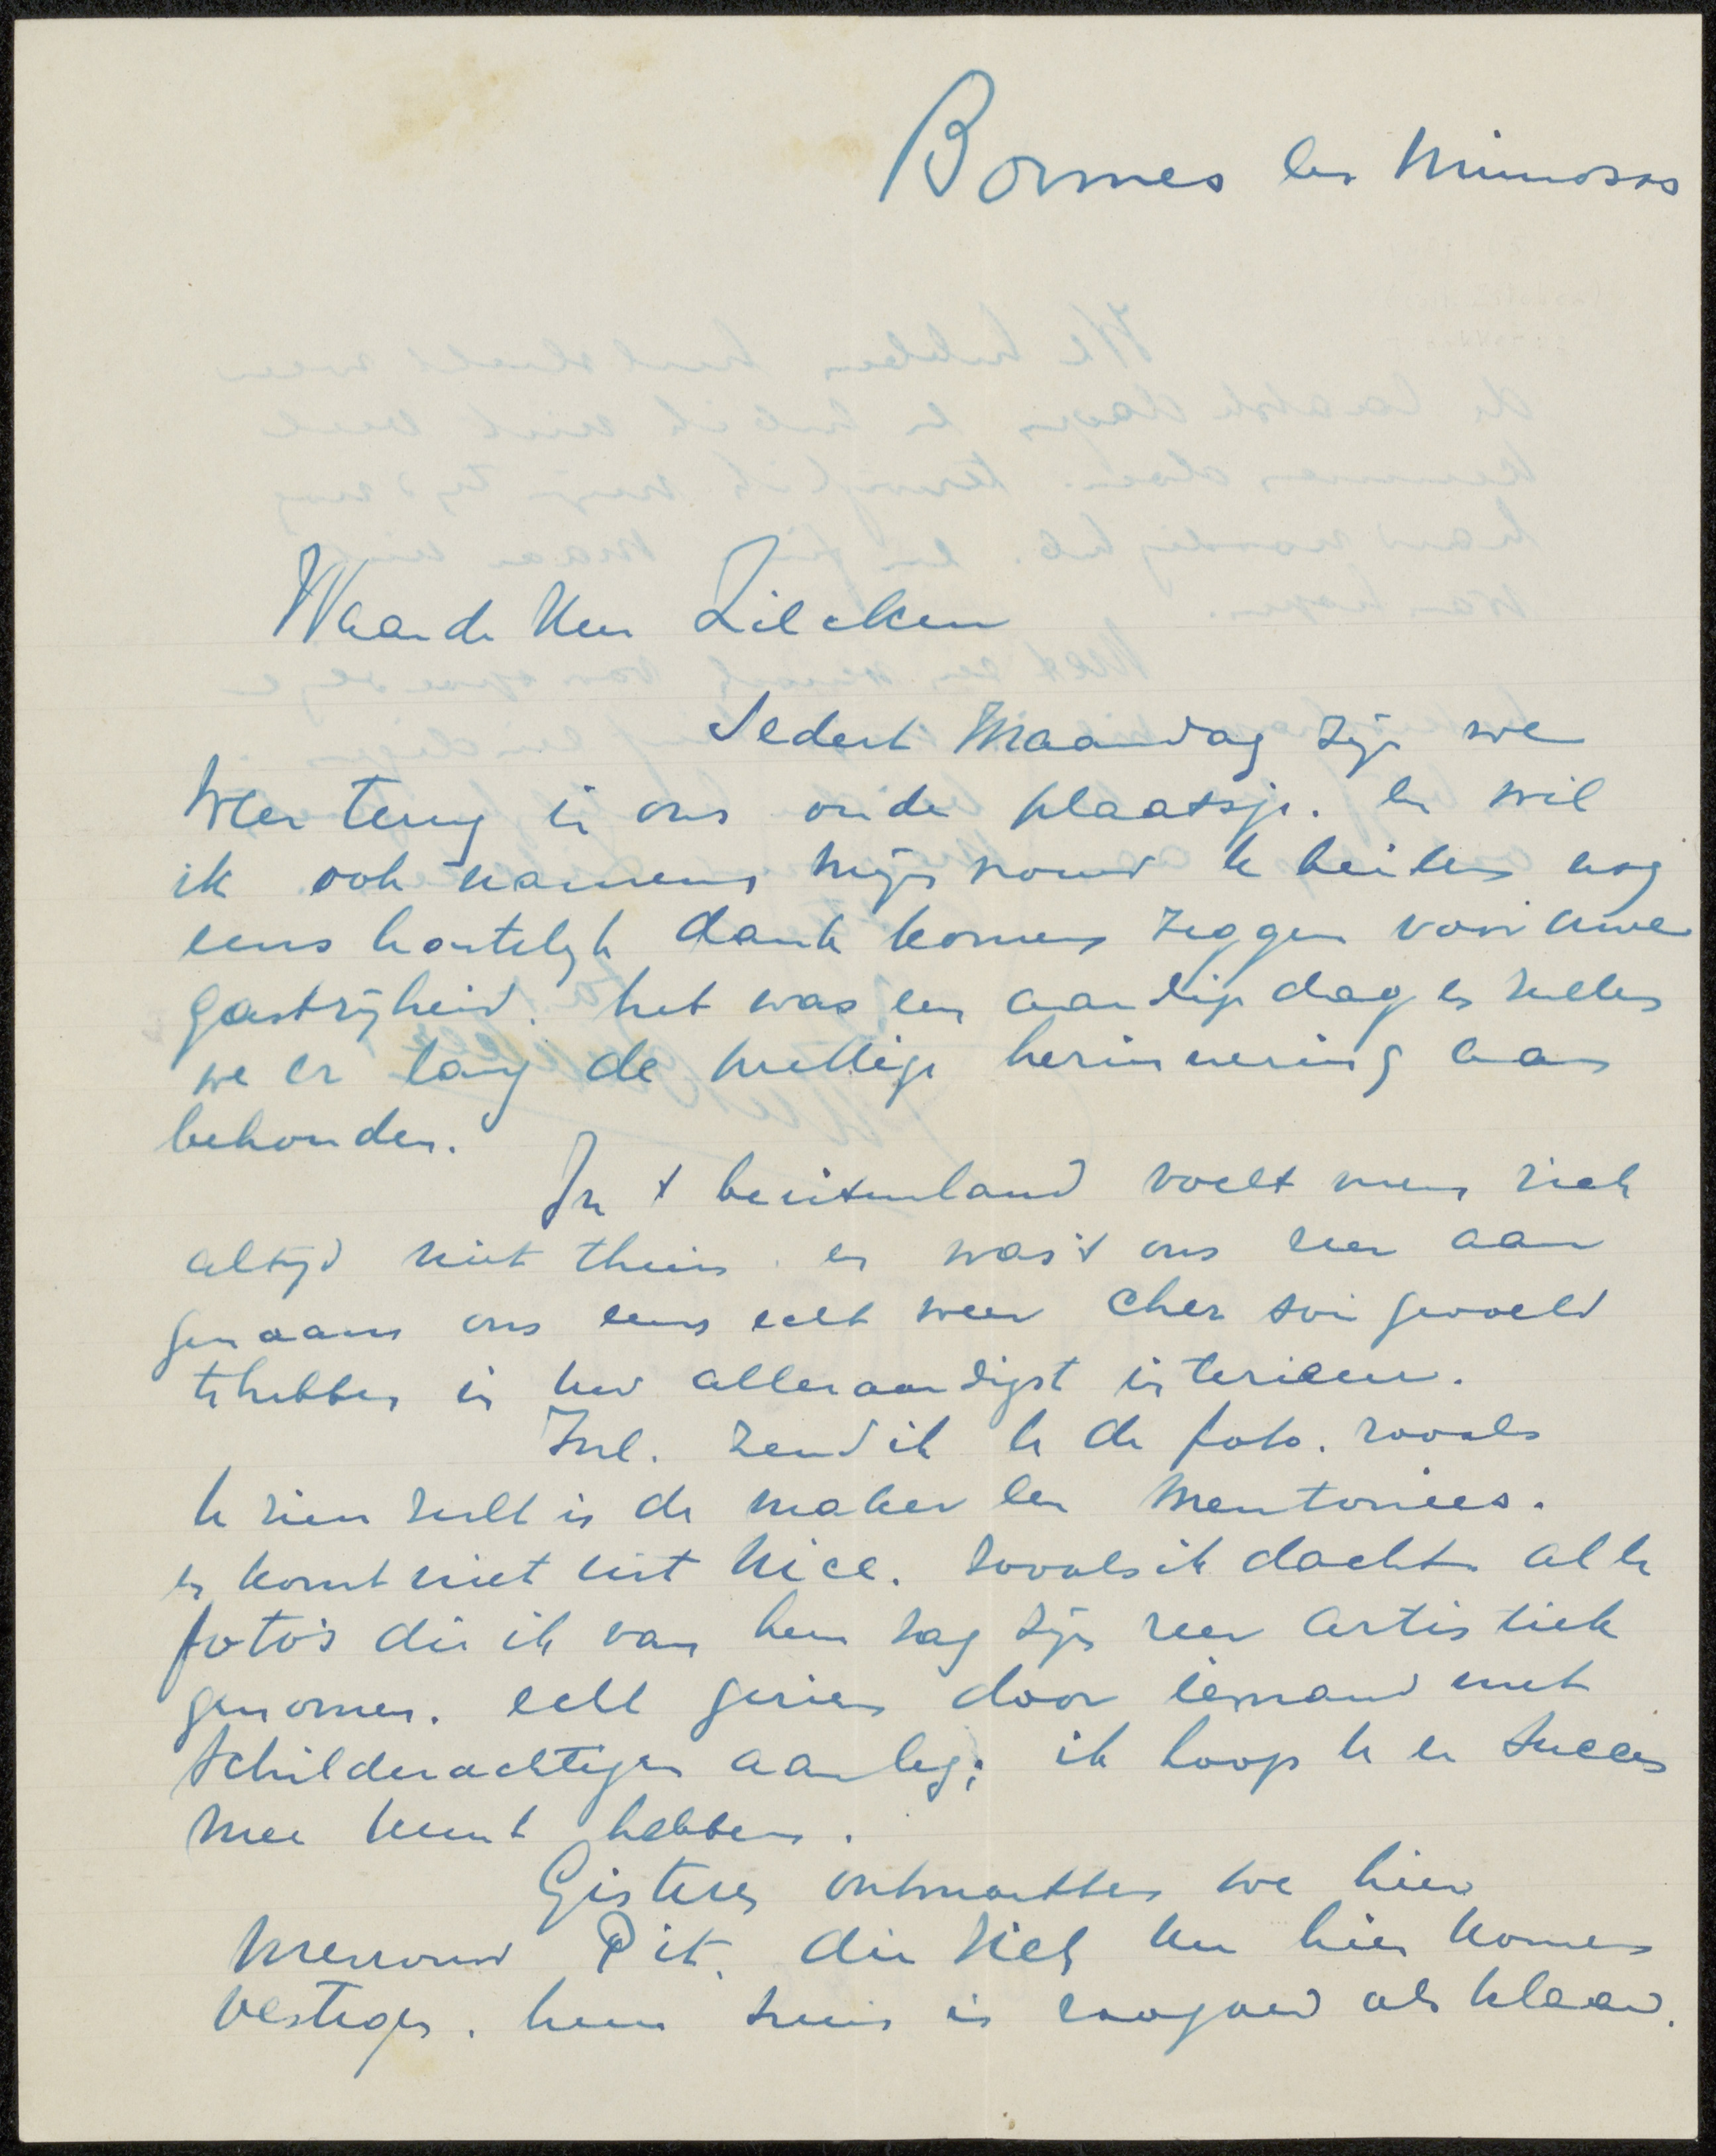 Bormes les Mimosas
Waarde Heer Zilcken
Sedert Maandag zijn we
weer terug in ons oude plaatsje. En wil
ik ook namens mijn vrouw U beiden nog
eens hartelijk dank komen zeggen voor uwe
gastvrijheid. het was een aardige dag en zullen
we er lang de prettige herinnering aan
behouden.
In 't buitenland voelt men zich
altijd niet thuis en was't ons zeer aan
genaam ons eens echt weer chez soi gevoeld
te hebben in uw alleraardigst interieur.
Incl. zend ik U de foto. zooals
U zien zult is de maker een Mentonees.
en komt niet uit Nice. zooals ik dacht. alle
foto's die ik van hem zag zijn zeer artistiek
genomen. echt gezien door iemand met
schilderachtigen aanleg; ik hoop U er succes
mee kunt hebben.
Gisteren ontmoetten we hier
Mevrouw Pit. die zich nu hier komen
vestigen. hun huis is zoogoed als klaar.